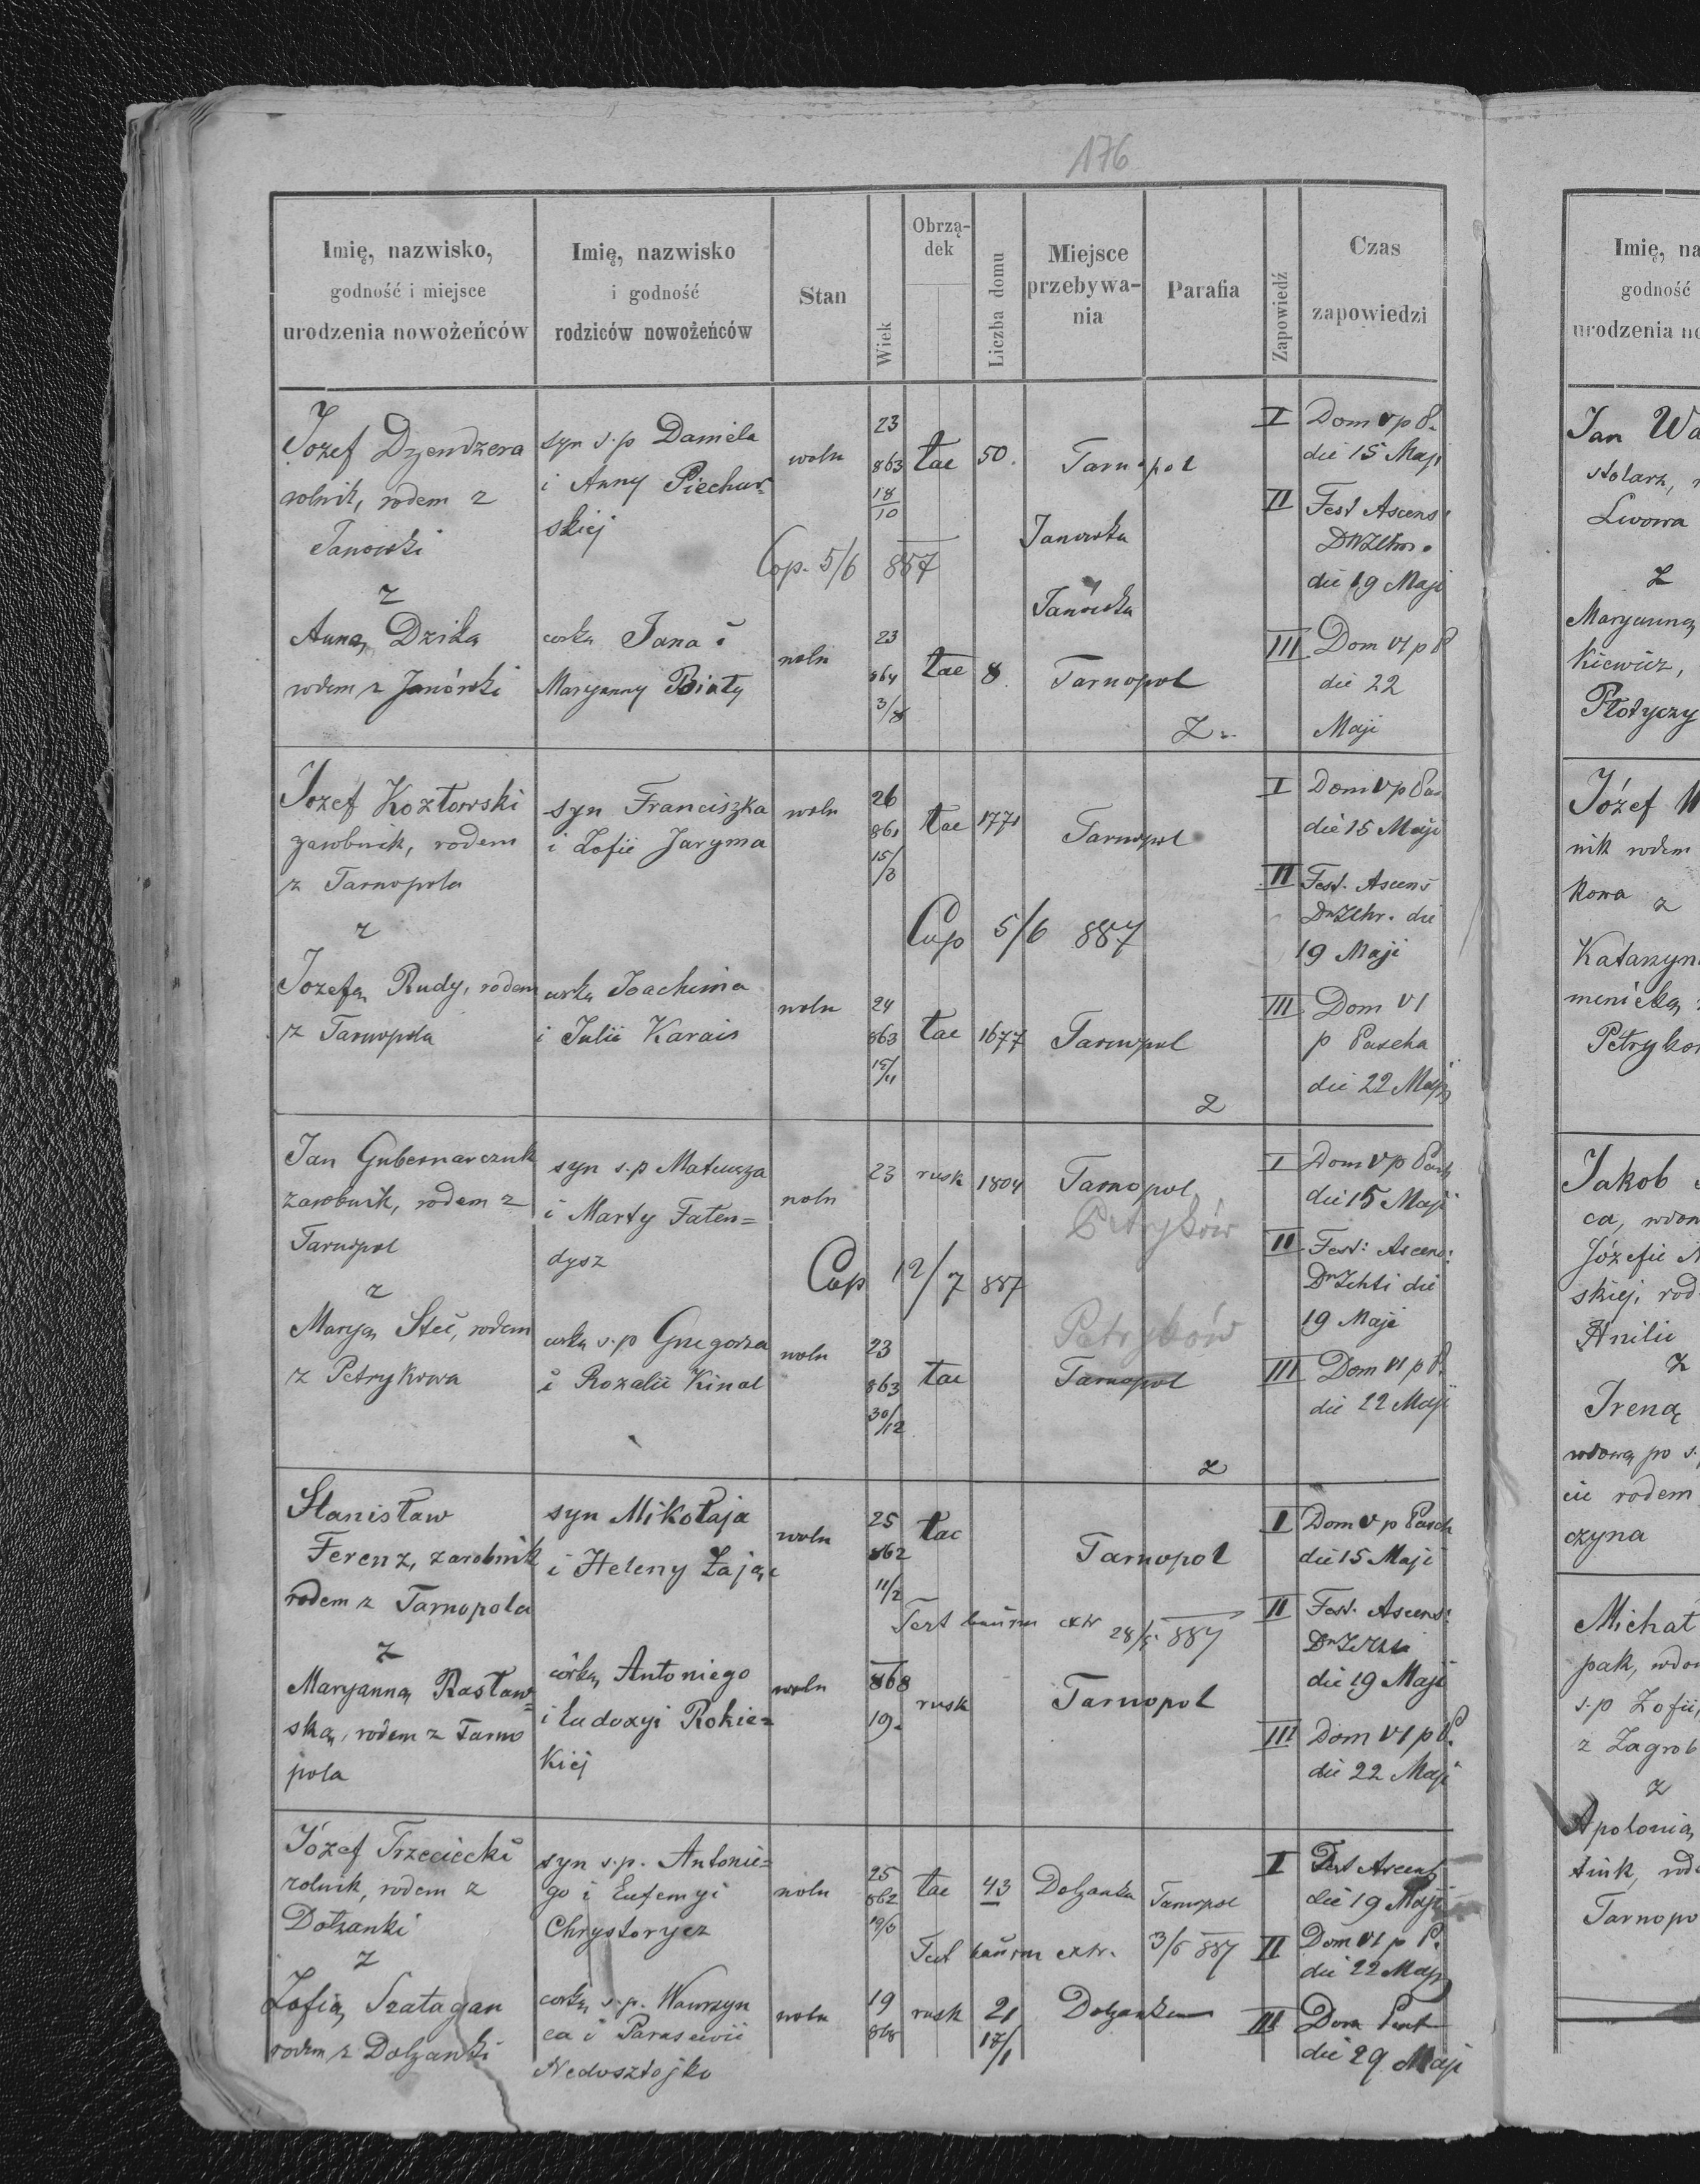 176
Imię, nazwisko,
godność i miejsce
urodzenia nowożeńców
Imię, nazwisko
i godność
rodziców nowożeńców
Stan
Wiek
Obrzą-
dek
Liczba domu
Miejsce
przebywa-
nia
Parafia
Zapowiedź
Czas
zapowiedzi
Jozef Dzendzera
rolnik, rodem z
Janówki
z
Anną Dziką
rodem z Janówki
syn s.p Daniela
i Anny Piechur-
skiej
corką Jana i
Maryanny Biały
woln
Cop. 5/6 887
woln
23
863
18/10
23
864
3/8
łac
łac
50.
8
Tarnopol
Janówka
Janówka
Tarnopol
Z.
I Dom V p P.
die 15 Maji
II Fest Ascens:
die 19 Maji
III Dom VI p P
die 22
Maji
Jozef Kozłowski
zarobnik, rodem
z Tarnopola
z
Jozefą Rudy, rodem
z Tarnopola
syn Franciszka
i Zofii Jaryma
corką Joachima
i Julii Karais
woln
woln
26
861
15/3
24
863
15/11
łac
łac
1771
1677
Tarnopol
Cop 5/6 887
Tarnopol
z
I Dom V p Pas
die 15 Maji
II Fest. Ascens
die
19 Maji
III Dom VI
p Pascha
die 22 Maji
Jan Gubernarczuk
zarobnik, rodem z
Tarnopol
z
Maryą Steć, rodem
z Petrykowa
syn s.p Mateusza
i Marty Faten=
dysz
corką s.p Gregorza
i Rozalii Kinal
woln
Cop 12/7 887
woln
23
23
863
30/12
rusk
łac
1804
Tarnopol
Petryków
Petryków
Tarnopol
z
I Dom V p Pasch
die 15 Maji
II Fest: Ascens:
die
19 Maji
III Dom VI p P.
die 22 Maji
Stanisław
Ferenz, zarobnik
rodem z Tarnopola
z
Maryanną Rasław=
ską, rodem z Tarno
pola
syn Mikołaja
i Heleny Zając
córką Antoniego
i Eudoxyi Rokic=
kiej
woln
woln
25
862
11/2
868
19.
łac
rusk
Tarnopol
Test extr 28/5 887
Tarnopol
I Dom V p Pasch
die 15 Maji
II Fest. Ascens:
die 19 Maji
III Dom VI p P.
die 22 Maji
Józef Trzeciecki
rolnik, rodem z
Dołzanki
z
Zofią Szatagan
rodem z Dolzanki
syn s.p. Antonie=
go i Eufemyi
Chrystorycz
corką s.p. Wawrzyn
ca i Parasewii
Nedosztojko
woln
woln
25
862
19/3
19
868
łac
rusk
43
21
17/1
Dolzanka
Tarnopol
extr. 3/6 887
Dolzanka
I Fest Ascens
die 19 Maji
II Dom VI p P.
die 22 Maji
III Dom Pent
die 29 Maji
Imię, na
godność
urodzenia no
Jan Wa
stolarz,
Lwowa
z
Maryanną
kiewicz,
Płotyczy
Józef W
nik rodem
kowa z
Katarzyn
menicką,
Petrykow
Jakob
ca, wdow
Józefie
skiej, rod
Anilii
z
Ireną
wdową po s.
cie rodem
czyna
Michał
pak, wdow
s.p Zofii,
z Zagrob
z
Apolonią
tiuk, rode
Tarnopo